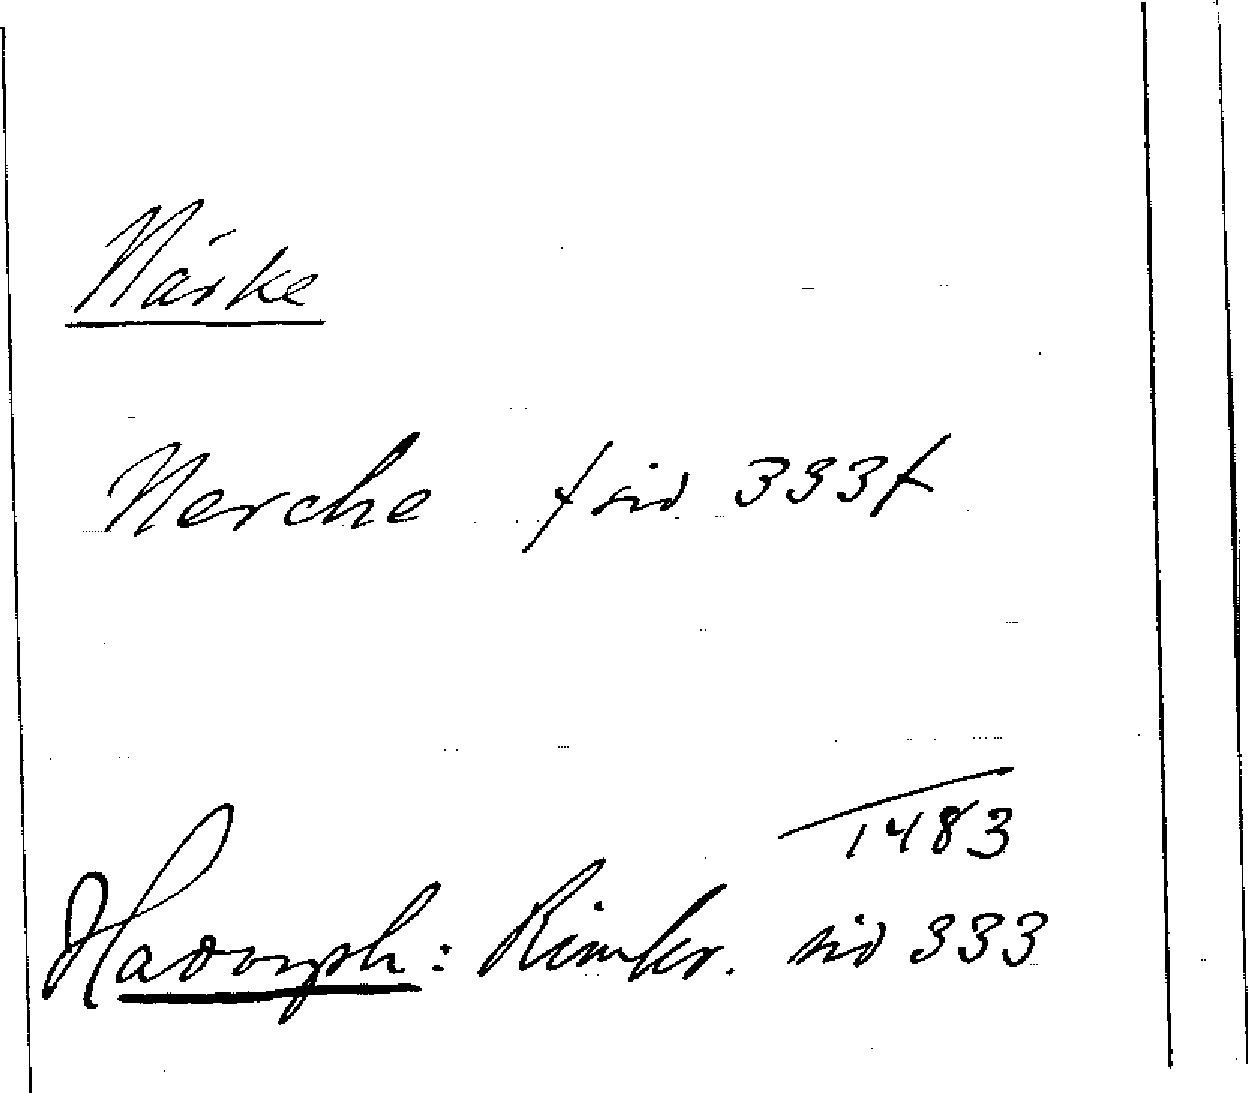 Närke
Nerche / sid 333 /
1483
Hadorph: Rimkr. sid 333